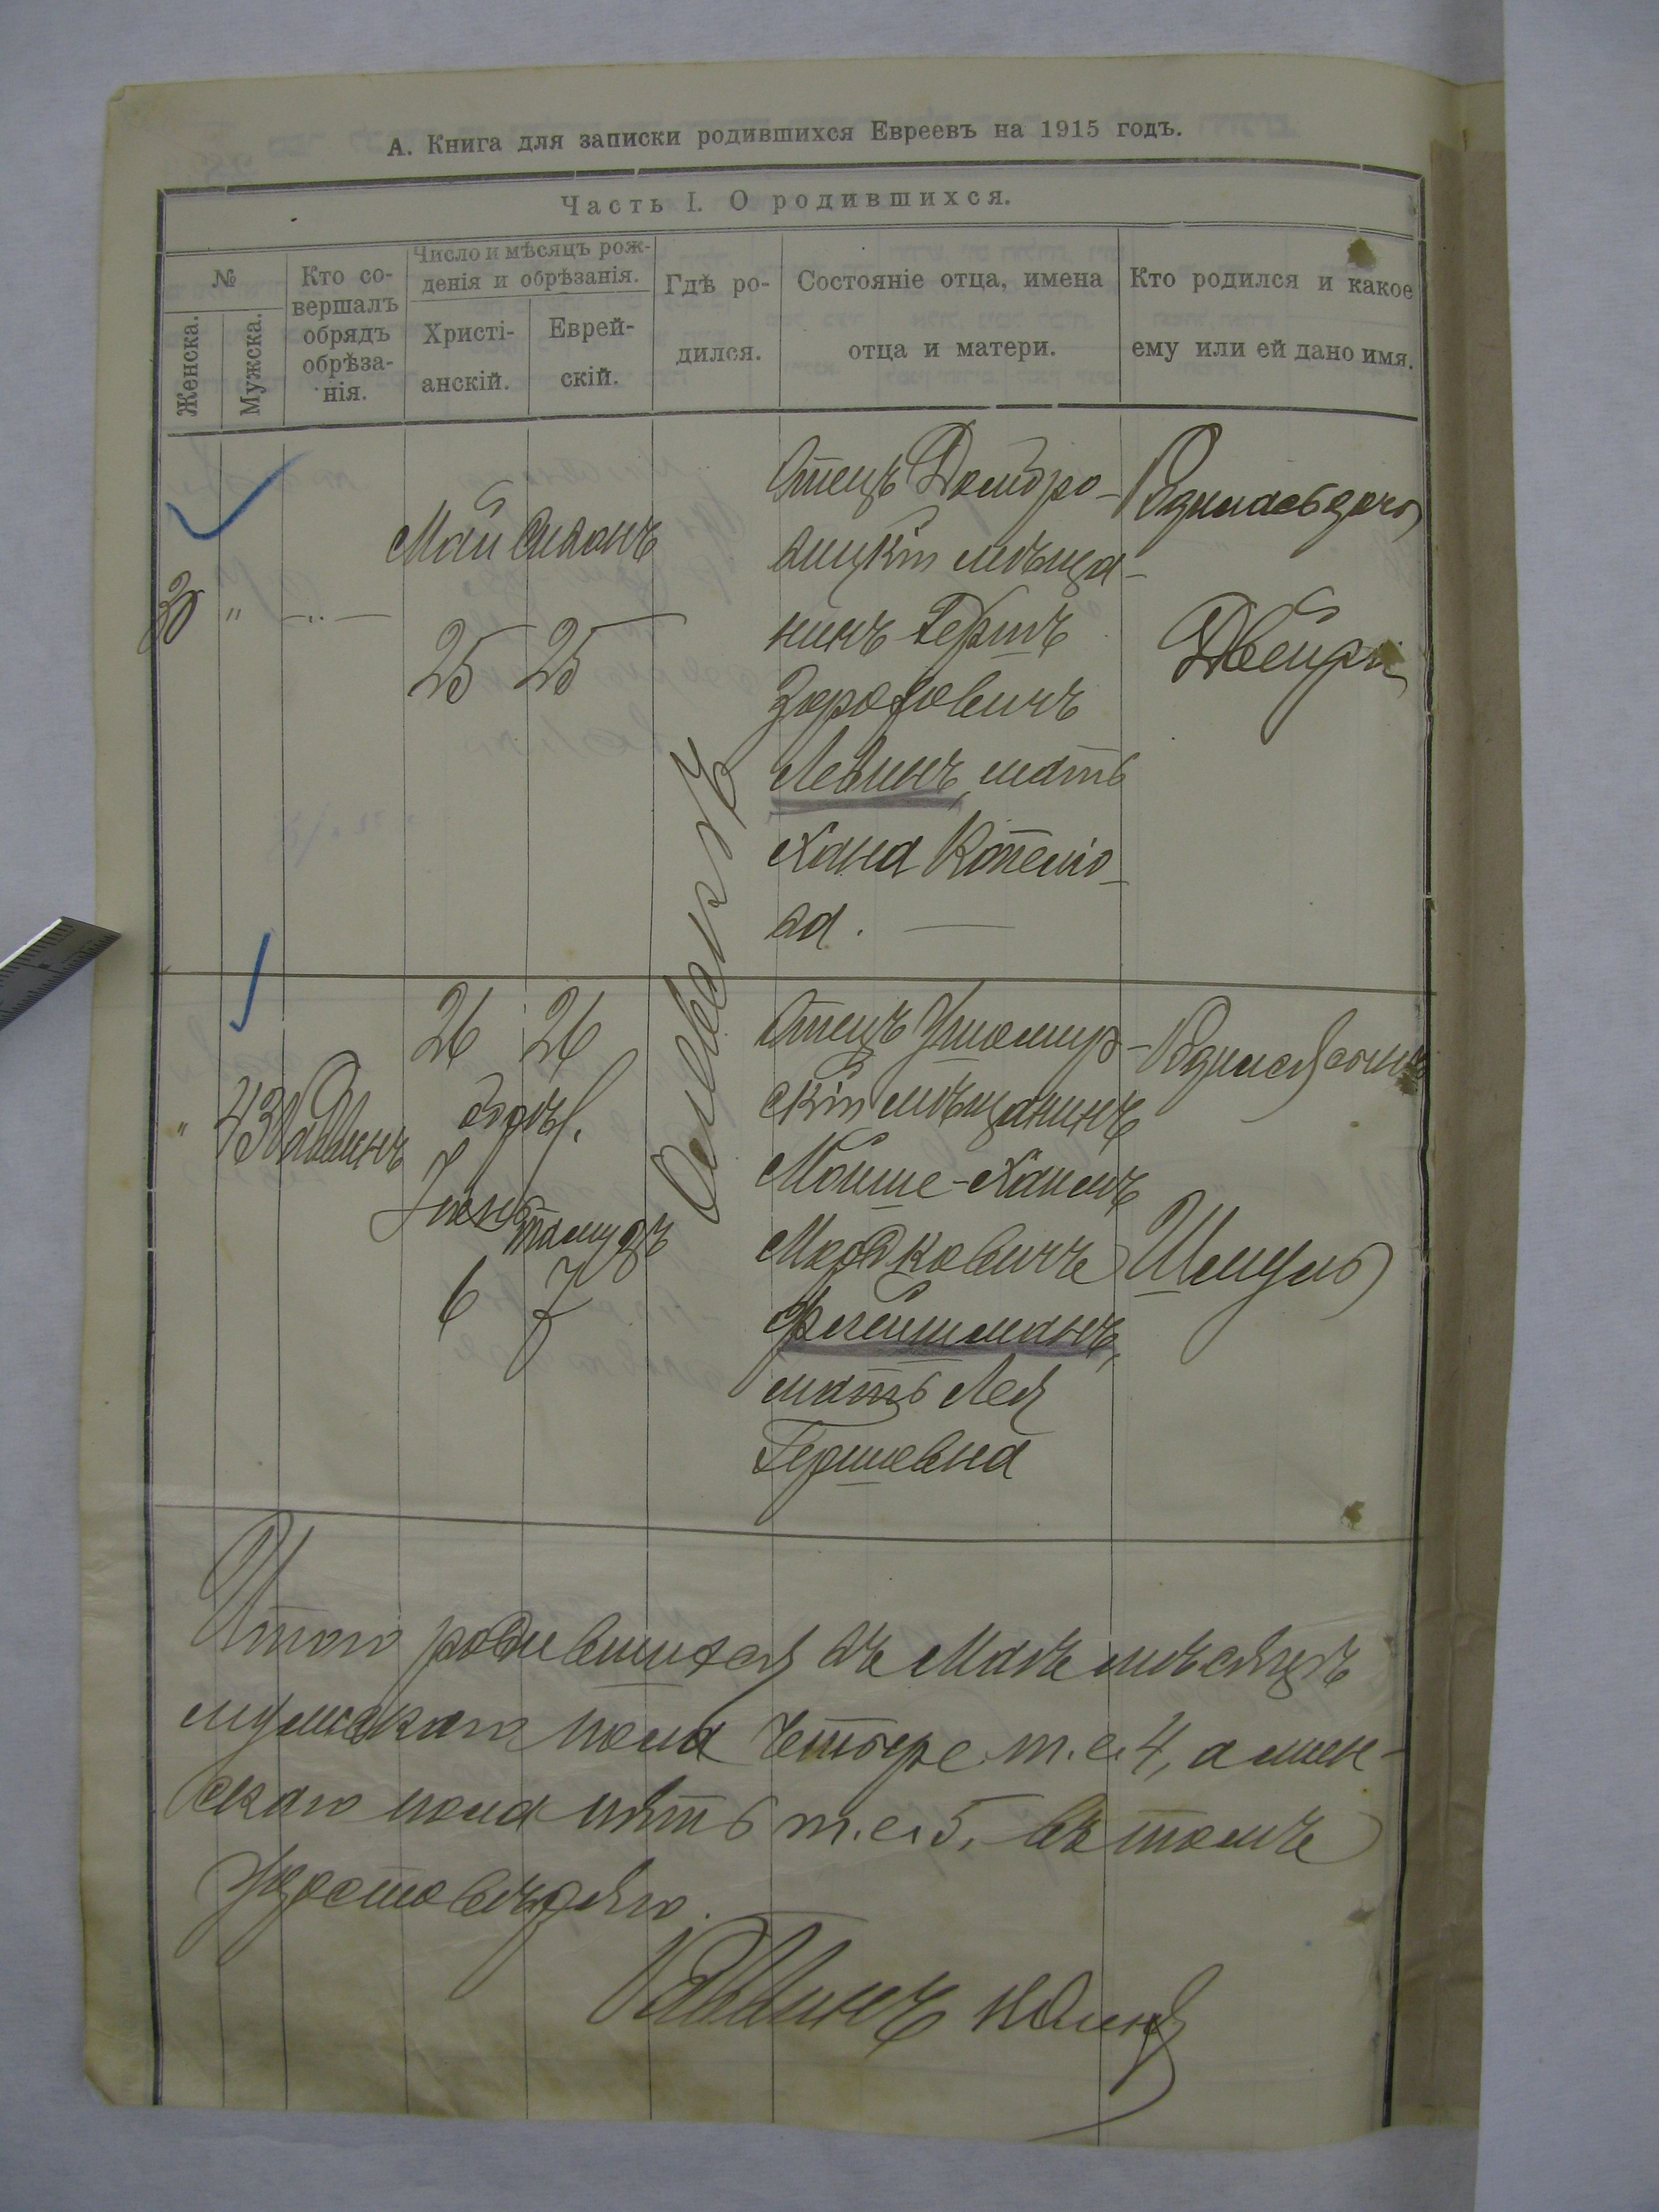 А. Книга для записки родившихся Евреевъ на 1915 годъ.
Часть I. О родившихся.
№
Женска.
Мужска.
Кто со-
вершалъ
обрядъ
обрѣза-
нія.
Число и мѣсяцъ рож-
денія и обрѣзанія.
Христі-
анскій.
Еврей-
скій.
Гдѣ ро-
дился.
Состояніе отца, имена
отца и матери.
Кто родился и какое
ему или ей дано имя.
30 " —..—
Май Сиванъ
25 25
Отецъ Домбро-
вицкій мѣща-
нинъ Гершъ
Зораховичъ
Левинъ, мать
Хана Котелю-
ва. —
Родилась дочь
Двейра
Олевскъ
" 43 Раввинъ
26 26
обрѣз.
Іюнь Тамузъ
6 7
Отецъ Житомир-
скій мѣщанинъ
Мойше-Хаимъ
Мордковичъ
Флейшманъ,
мать Лея
Гершовна
Родился сынъ
Шмуль
Итого родившихся въ Маѣ мѣсяцѣ
мужскаго пола четыре т.е. 4, а жен-
скаго пола пять т.е. 5, въ томъ
удостовѣряю.
Раввинъ